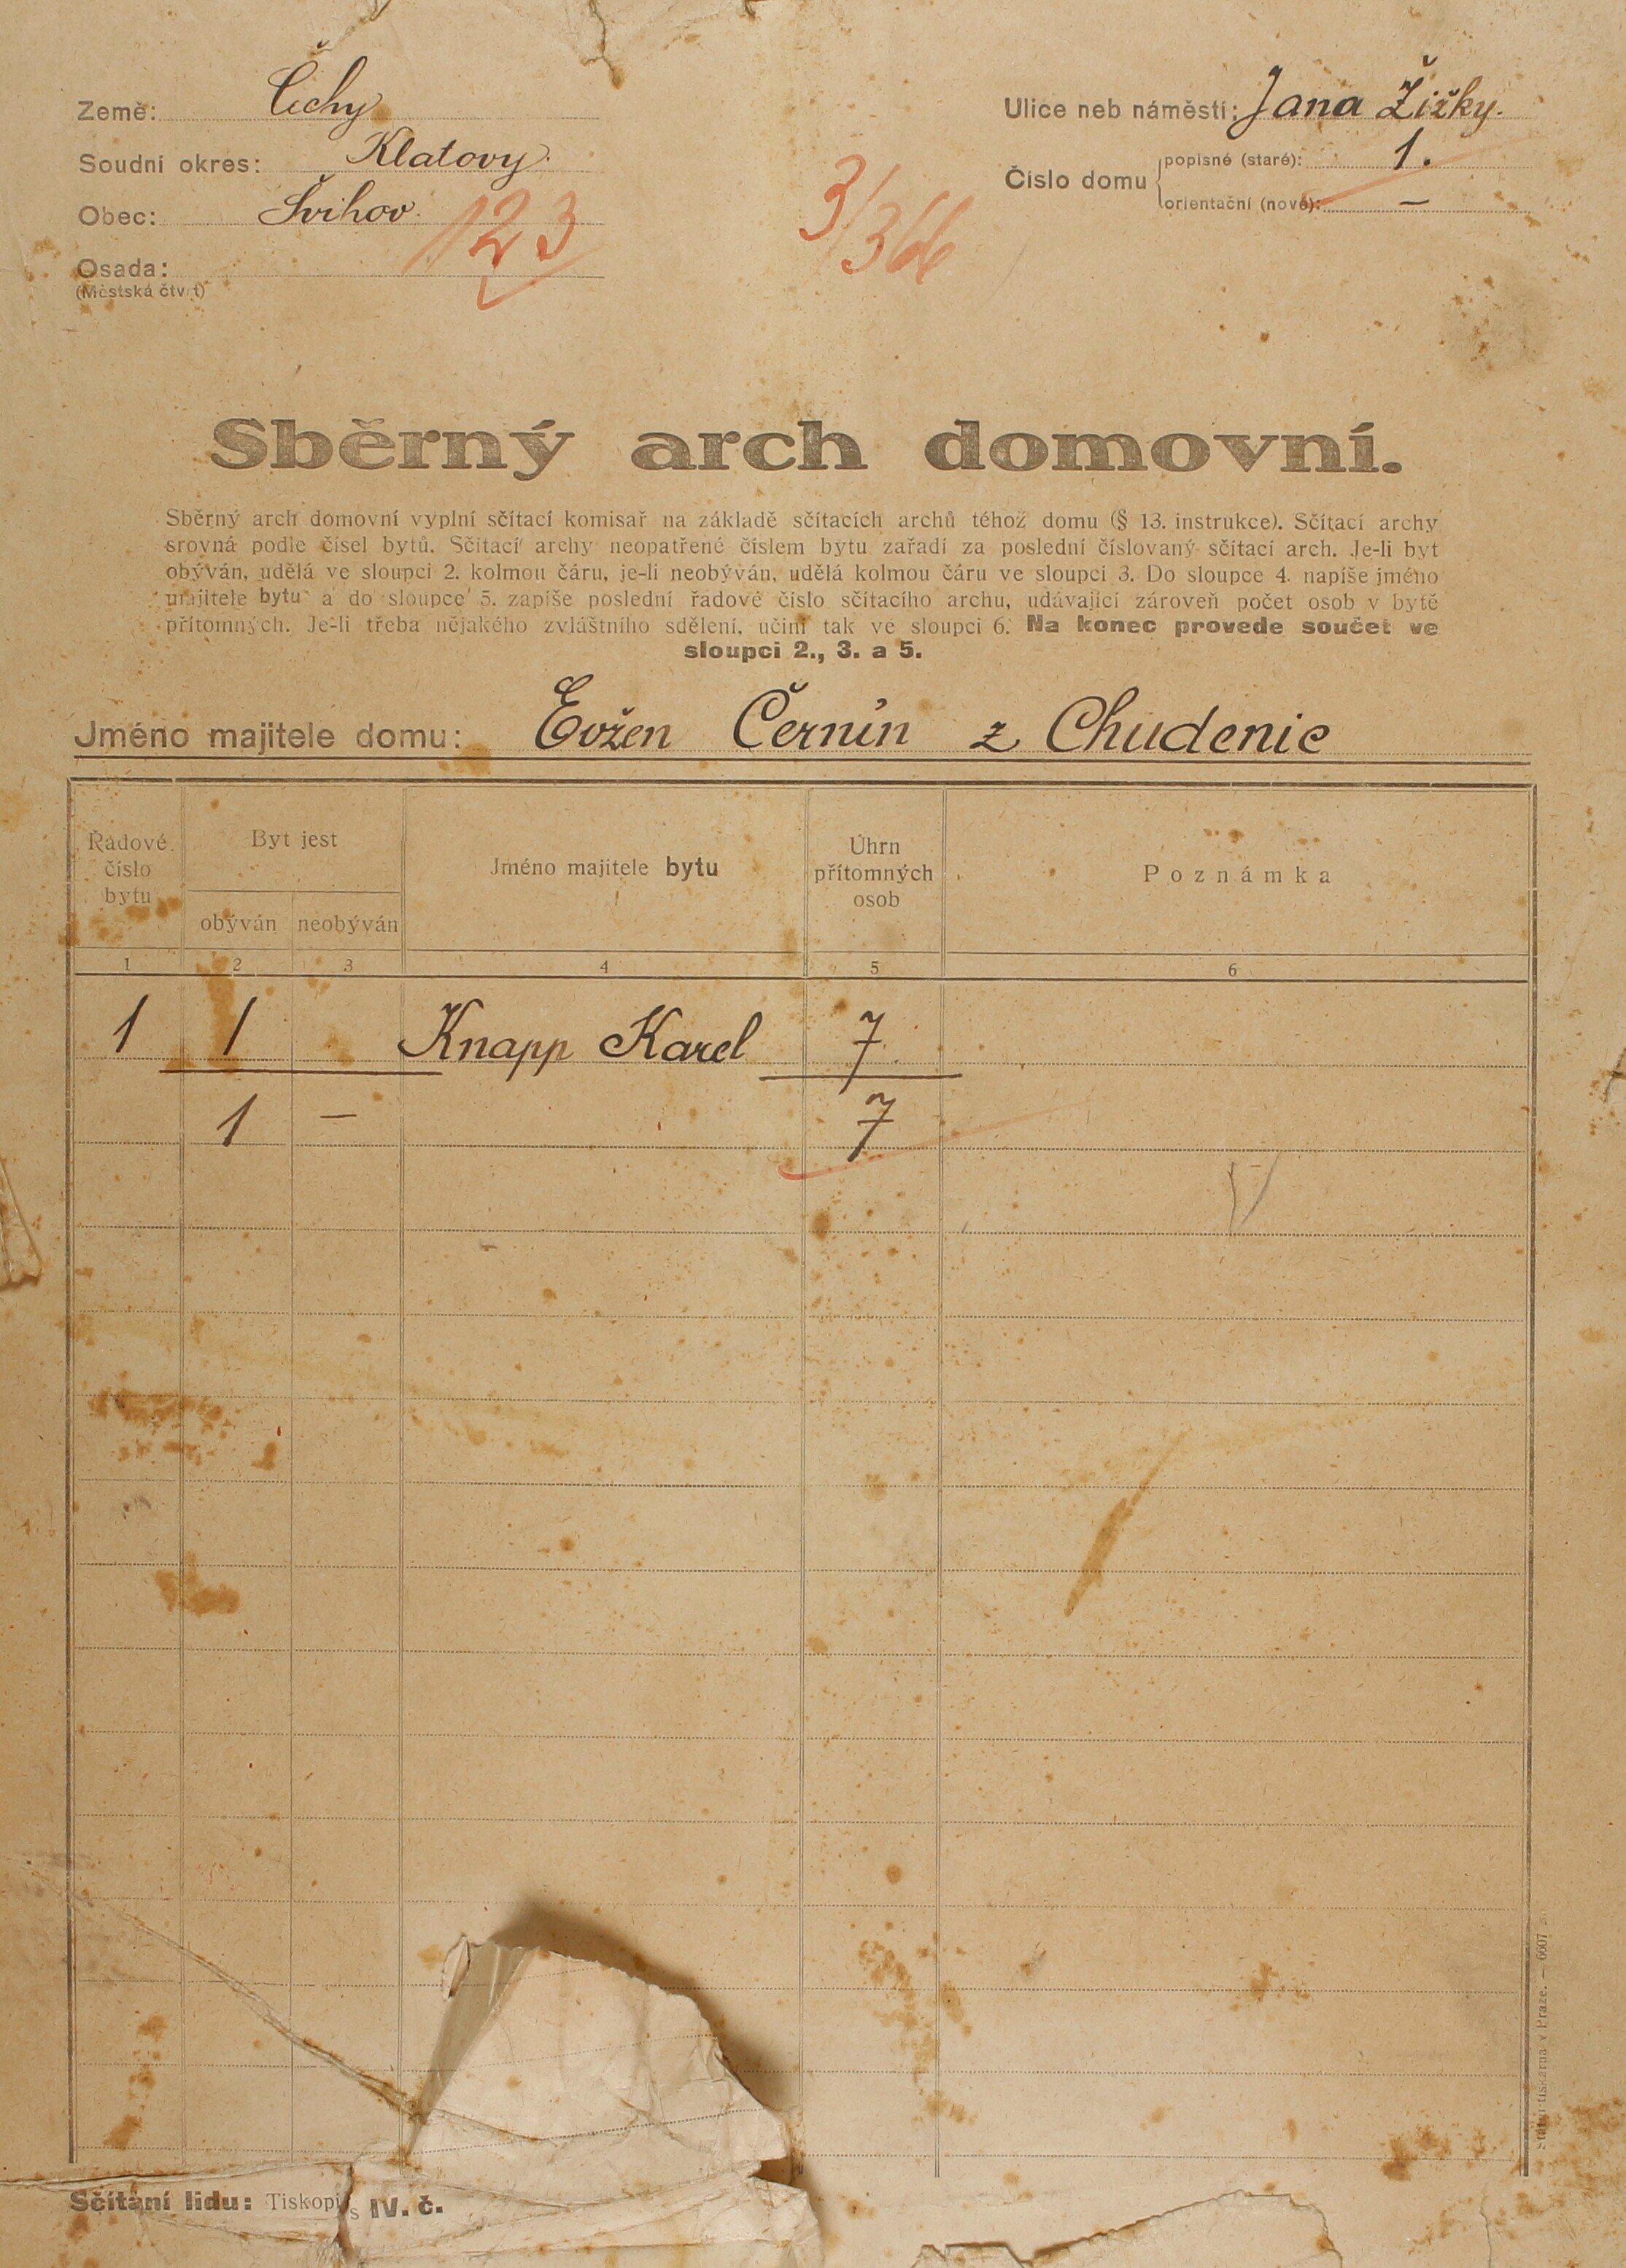 Země: Čechy
Soudní okres: Klatovy.
Obec: Švihov.
123
Osada:
(Městská čtvrt)
3/366
Ulice neb náměstí: Jana Žižky.
Číslo domu
popisné (staré): 1.
orientační (nové): –
Sběrný arch domovní.
Sběrný arch domovní vyplní sčítací komisař na základě sčítacích archů téhož domu (§ 13. instrukce). Sčítací archy
srovná podle čísel bytů. Sčítací archy neopatřené číslem bytu zařadí za poslední číslovaný sčítací arch. Je-li byt
obýván, udělá ve sloupci 2. kolmou čáru, je-li neobýván, udělá kolmou čáru ve sloupci 3. Do sloupce 4. napíše jméno
majitele bytu a do sloupce 5. zapíše poslední řadové číslo sčítacího archu, udávající zároveň počet osob v bytě
přítomných. Je-li třeba nějakého zvláštního sdělení, učiní tak ve sloupci 6. Na konec provede součet ve
sloupci 2., 3. a 5.
Jméno majitele domu: Evžen Černín z Chudenic
Řadové číslo bytu
Byt jest
obýván neobýván
Jméno majitele bytu
Úhrn přítomných osob
Poznámka
1 2 3 4 5 6
1 1 Knapp Karel 7
1 – 7
Sčítání lidu: Tiskopis IV. č.
Státní tiskárna v Praze. — 6607